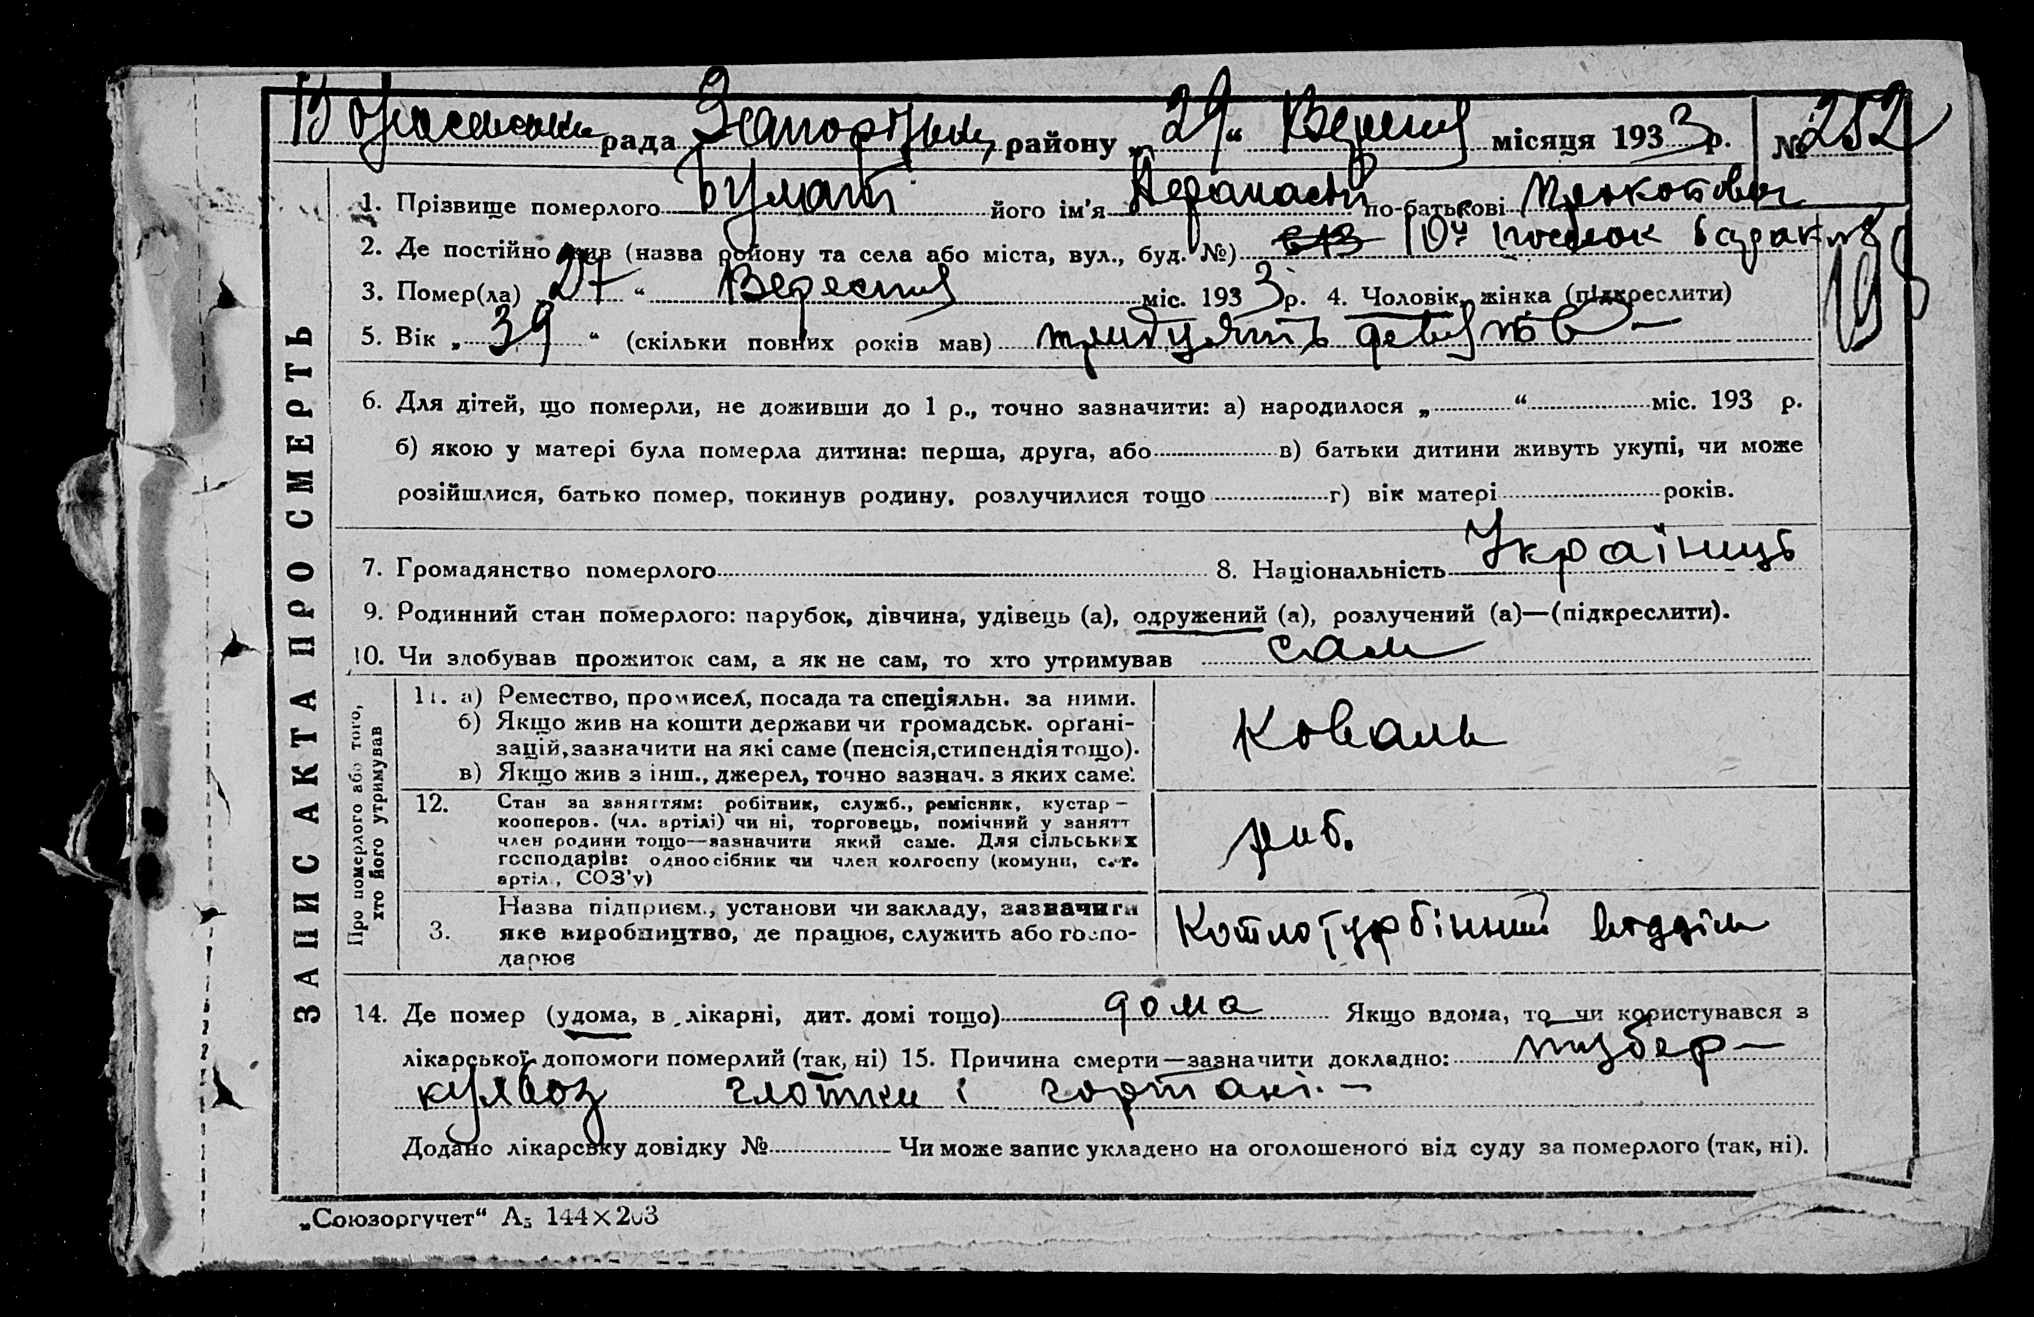 Вознесенська рада Запоріжжя, району „29“ Вересня місяця 1933 р. № 252
1. Прізвище померлого Булат його ім'я Афанасій по-батькові Прокопович
2. Де постійно жив (назва району та села або міста, вул., буд. №) 10й поселок барак №8
3. Помер(ла) „27“ Вересня міс. 1933 р. 4. Чоловік, жінка (підкреслити)
5. Вік „39“ (скільки повних років мав) тридцять девять
6. Для дітей, що померли, не доживши до 1 р., точно зазначити: а) народилося „ “ міс. 193 р.
б) якою у матері була померла дитина: перша, друга, або в) батьки дитини живуть укупі, чи може
розійшлися, батько помер, покинув родину, розлучилися тощо г) вік матері років.
7. Громадянство померлого 8. Національність Українець
9. Родинний стан померлого: парубок, дівчина, удівець (а), одружений (а), розлучений (а)—(підкреслити).
10. Чи здобував прожиток сам, а як не сам, то хто утримував сам
ЗАПИС АКТА ПРО СМЕРТЬ
Про померлого або того,
хто його утримував
11. а) Ремество, промисел, посада та спеціяльн. за ними.
б) Якщо жив на кошти держави чи громадськ. органі-
зацій, зазначити на які саме (пенсія, стипендія тощо).
в) Якщо жив з інш., джерел, точно зазнач. з яких саме:
Коваль
12. Стан за заняттям: робітник, служб., ремісник, кустар –
кооперов. (чл. артілі) чи ні, торговець, помічний у занятт
член родини тощо—зазначити який саме. Для сільських
господарів: одноосібник чи член колгоспу (комуни, с.-г.
артіл., СОЗ'у)
3. Назва підприєм., установи чи закладу, зазначити
яке виробництво, де працює, служить або госпо-
дарює
Котлотурбінний відділ
14. Де помер (удома, в лікарні, дит. домі тощо) дома Якщо вдома, то чи користувався з
лікарської допомоги померлий (так, ні) 15. Причина смерти—зазначити докладно: тубер-
кульоз глотки і гортані. —
Додано лікарську довідку № Чи може запис укладено на оголошеного від суду за померлого (так, ні).
„Союзоргучет“ А5 144×203